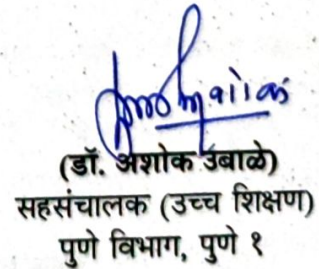 (डॉ. अशोक उबाळे)
सहसंचालक (उच्च शिक्षण)
पुणे विभाग, पुणे १